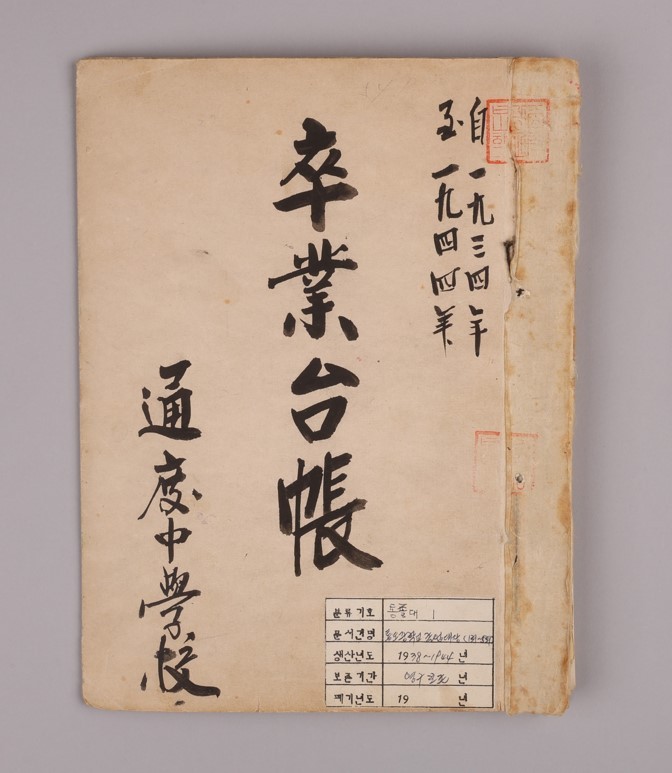 自一九三四年
至一九四四年
卒業台帳
通度中學校
분류기호 통졸대 1
문서건명 통도중학교 졸업대장
생산년도 1938~1944 년
보존기간 영구보존
폐기년도 19 년